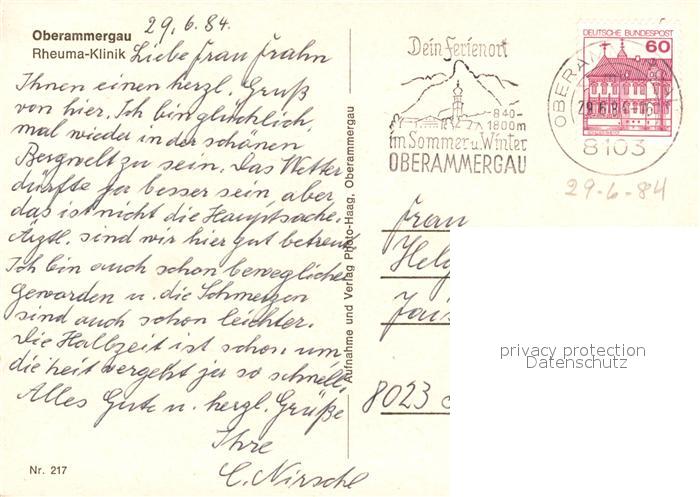 Oberammergau
Rheuma-Klinik
29.6.84.
Liebe Frau Frahn
Ihnen einen herzl. Gruß
von hier. Ich bin glücklich,
mal wieder in der schönen
Bergwelt zu sein. Das Wetter
dürfte ja besser sein, aber
das ist nicht die Hauptsache.
Ärztl. sind wir hier gut betreut
Ich bin auch schon beweglicher
geworden u. die Schmerzen
sind auch schon leichter.
Die Halbzeit ist schon um
die Zeit vergeht ja so schnell.
Alles Gute u. herzl. Grüße
Ihre
C. Nirschl
Nr. 217
Aufnahme und Verlag Photo-Haag, Oberammergau
Dein Ferienort
840-
1800m
im Sommer u. Winter
OBERAMMERGAU
DEUTSCHE BUNDESPOST
60
OBERAM
29.6.84
8103
29-6-84
Frau
Helg
8023
privacy protection
Datenschutz